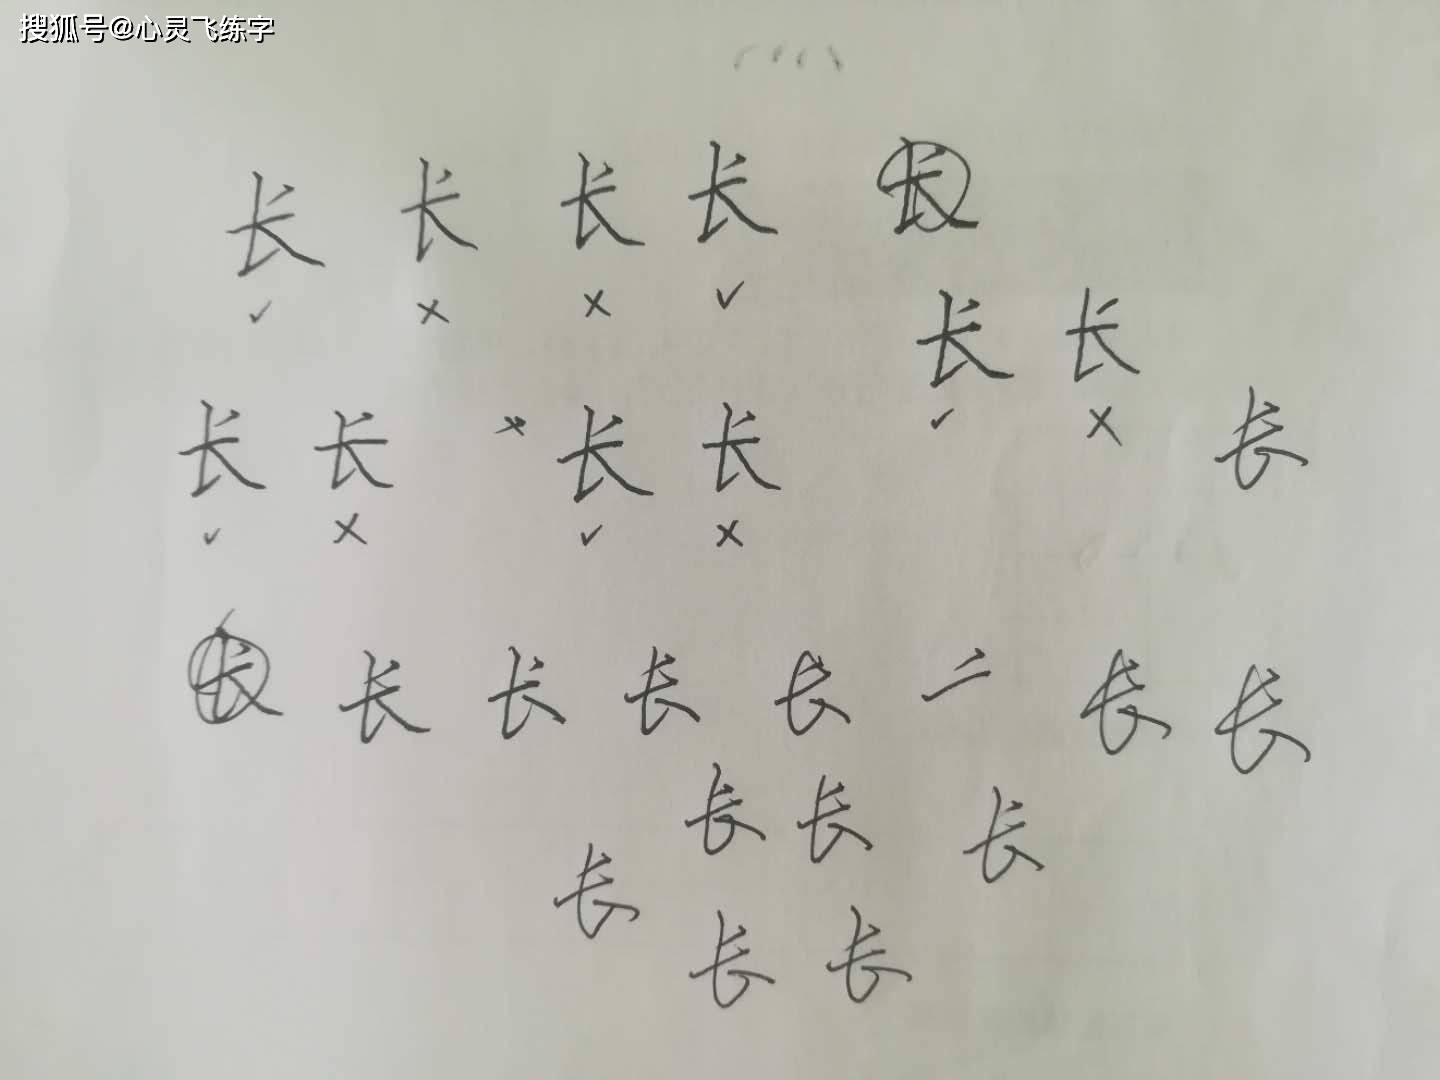 搜狐号@心灵飞练字
长 长 长 长 长
✓ × × ✓
长 长
✓ ×
长 长 长 长 长
✓ × ✓ ×
长 长 长 长 长 长 长
长 长 长
长
长 长